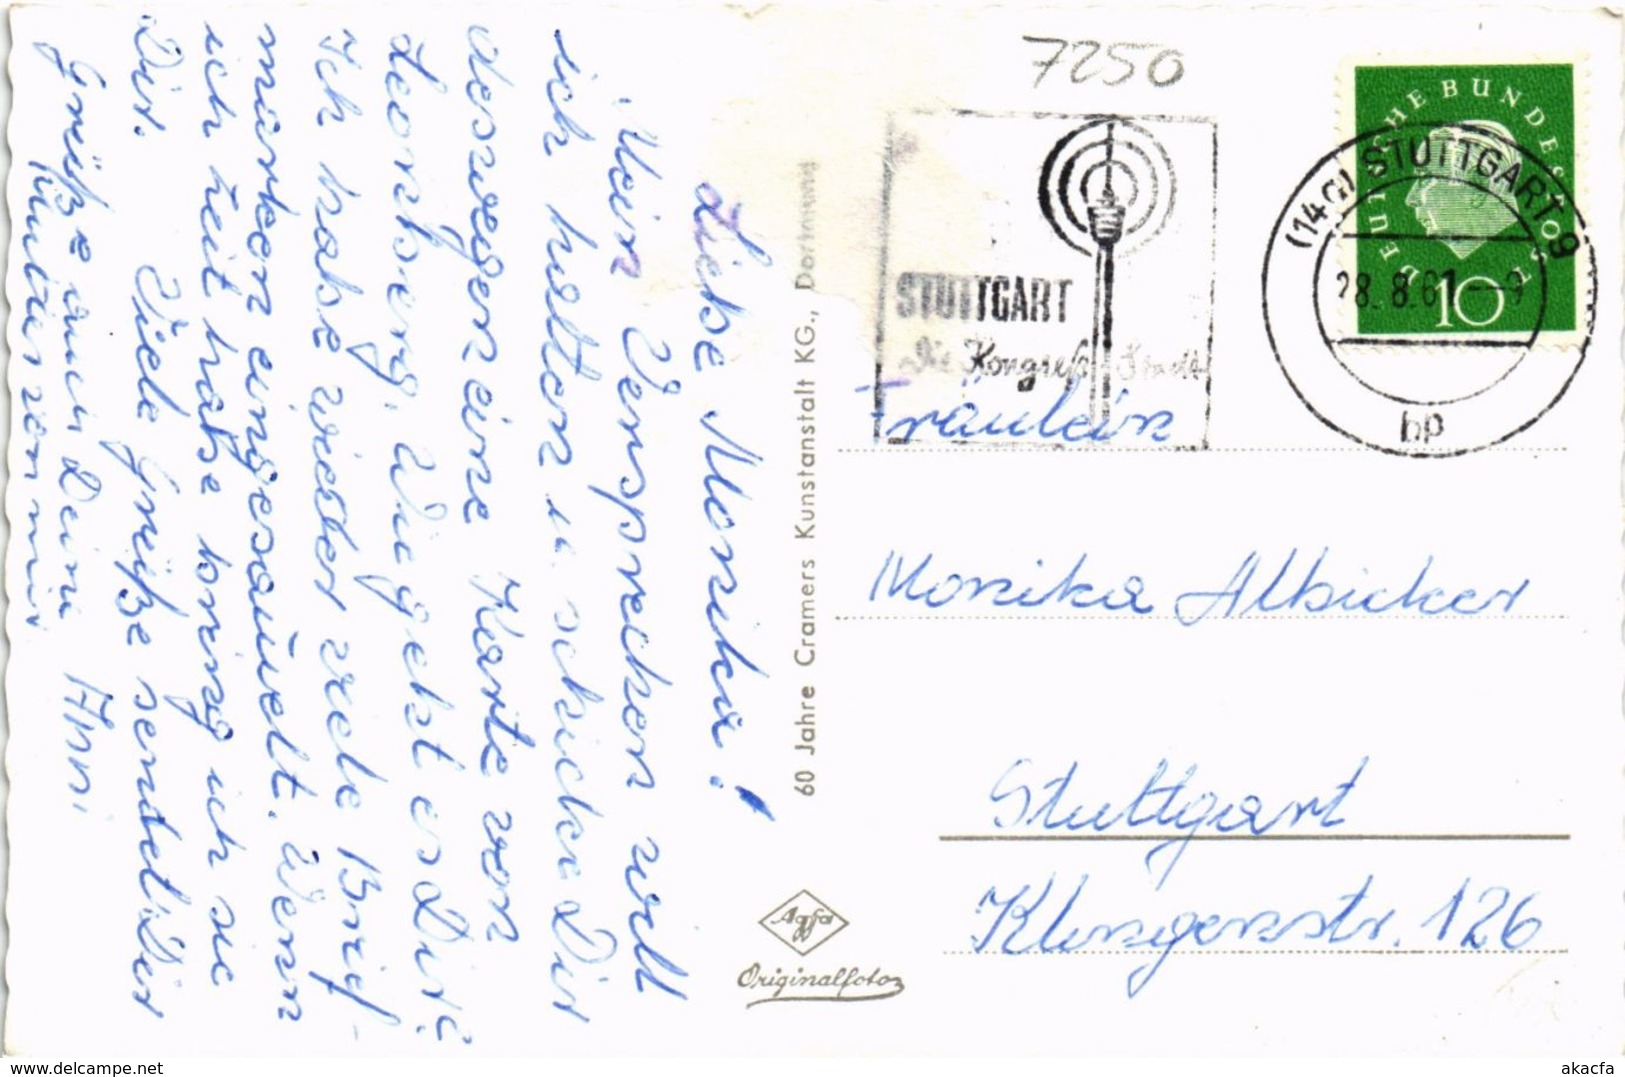 7250
DEUTSCHE BUNDESPOST
10
(14a) STUTTGART 9
28. 8. 61 - 9
bp
STUTTGART
die Kongreß-Stadt
Fräulein
Monika Albicker
Stuttgart
Klingenstr. 126
Liebe Monika!
Mein Versprechen will
ich halten u. schicke Dir
deswegen eine Karte von
Leonberg. Wie geht es Dir?
Ich habe wieder viele Brief-
marken eingesammelt. Wenn
ich Zeit habe bring ich sie
Dir. Viele Grüße sendet Dir
Anni
Grüße auch Deine
von mir
60 Jahre Cramers Kunstanstalt KG., Dortmund
Agfa
Originalfoto
akacfa